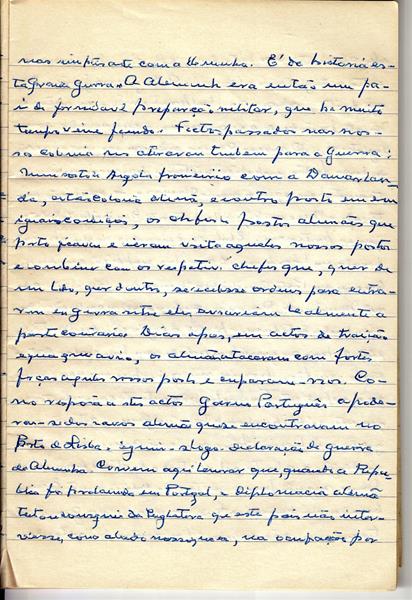 mas importante com a Alemanha. É da historia es-
ta Grande Guerra. A Alemanh era então um pa-
is de formidavel preparação militar, que ha muito
tempo vinha fazendo. Factos passados nas nos-
sa colonia nos atiraram tambem para a Guerra:
Num posto Angola fronteiriço com a Damaralan-
dia, colonia alemã, e noutro posto em
iguais condições, os chefes postos alemães que
perto ficavam e vieram visita aqueles nossos postos
e combinar com os respetivos chefes que, quer de
um lado, quer doutro, se recebesse ordens para entra-
rem en guerra entre eles avisariam lealmente a
parte contrária. Dias após, em actos de traição
os alemães atacaram com fortes
forças aqueles nossos postos e ocuparam-nos. Co-
mo resposta a estes actos Governo Português apode-
rar-se dos navos alemão que se encontravam no
Porto de Lisboa. seguiu-se logo declaração de guerra
da Alemanha Convem aqui lembrar que, quando a Repu-
blica foi proclamada em Portugal, a diplomacia alemã
tentou conseguir da Inglaterra que este pais não inter-
viesse, como aliado nosso, na ocupação por